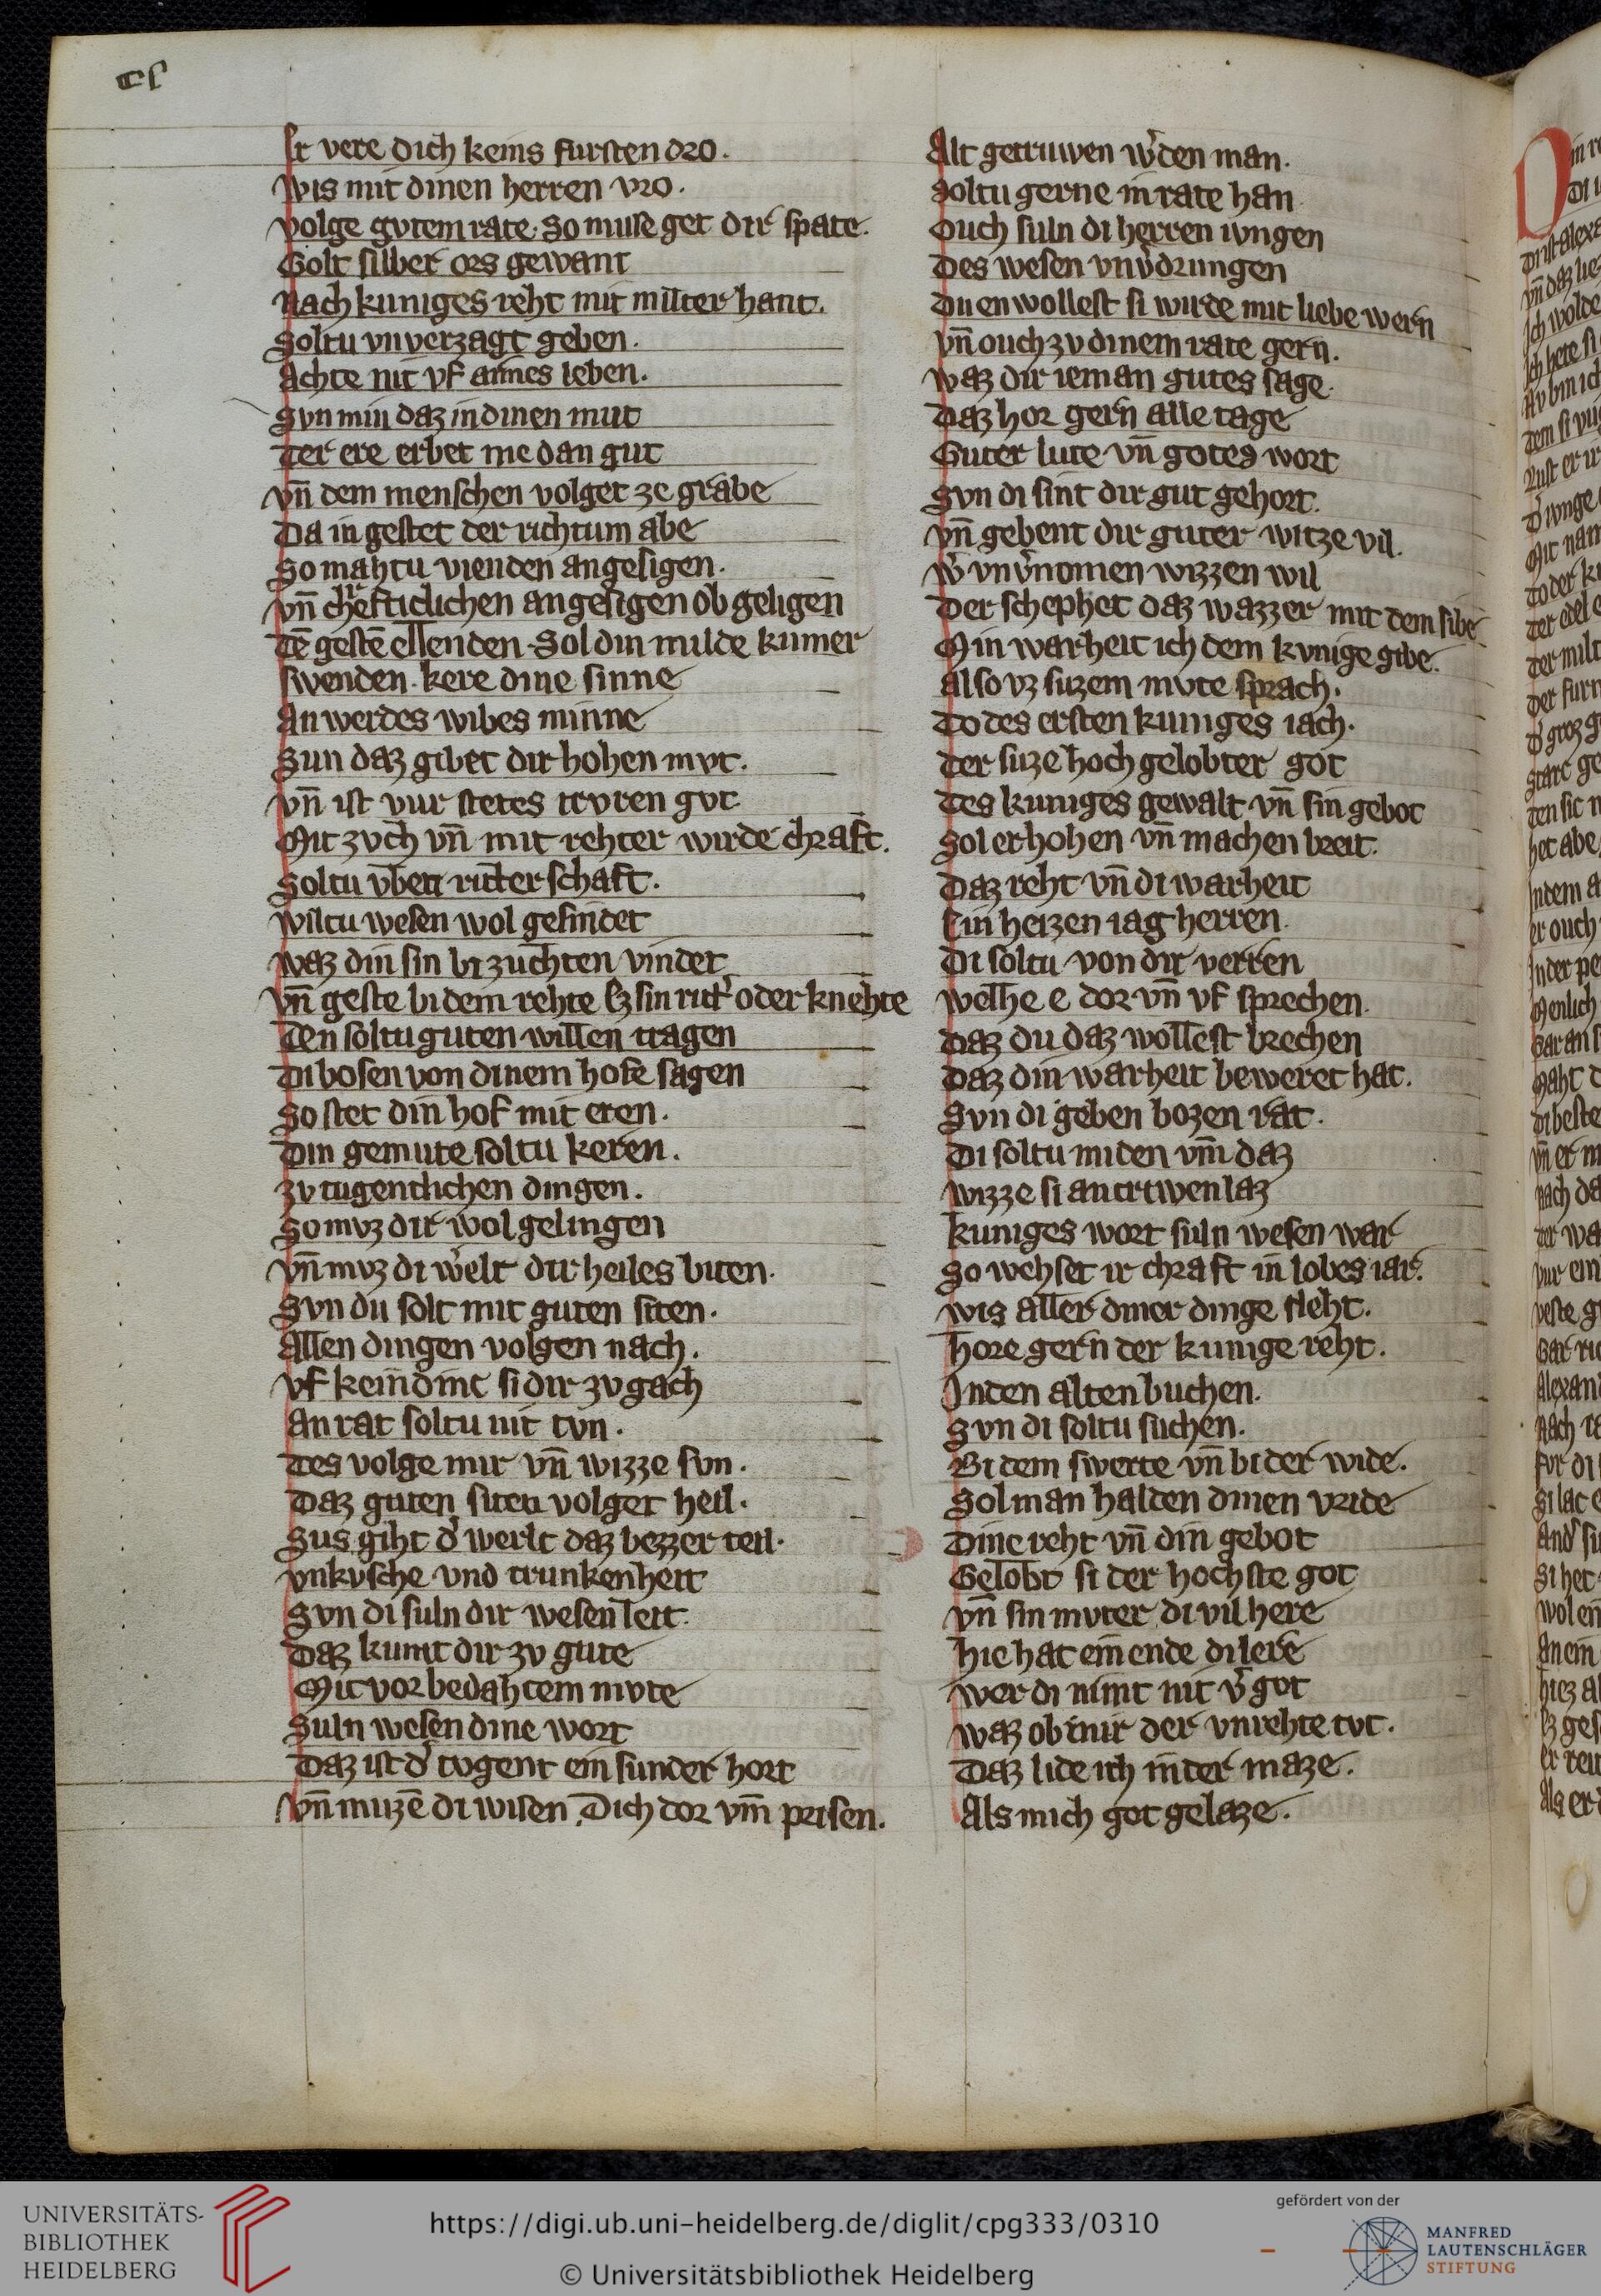 Ir vete dich keins fursten dro.
Wis mit dinen herren vro.
Volge gvtem rate. So muse get dir spate.
Golt silber ors gewant
Nach kuniges reht mit milter hant.
Soltu vnverzagt geben.
Achte nit vf armes leben.
Svn min daz in dinen mut
Der ere erbet me dan gut
Vn̄ dem menschen volget ze grabe
Da in gestet der richtum abe
So mahtu vienden angesigen.
Vn̄ chrefticlichen angesigen ob geligen
Dē gestē ellenden. Sol din milde kumer
swenden. kere dine sinne
An werdes wibes minne
Sun daz gibet dir hohen mvt.
Vn̄ ist vur stetes trvren gvt
Mit zvch vn̄ mit rehter wirde chraft.
Soltu vben ritterschaft.
Wiltu wesen wol gesindet
Waz din sin bi zuchten vindet
Vn̄ geste bi dem rehte Ez sin ritt̾ oder knehte
Den soltu guten willen tragen
Di bosen von dinem hofe sagen
So stet din hof mit eren.
Din gemute soltu keren.
Zv tugentlichen dingen.
So mvz dir wol gelingen
Vn̄ mvz di w̾elt dir heiles biten.
Svn du solt mit guten siten.
Allen dingen volgen nach.
Vf kein dinc si dir zv gach
An rat soltu nit tvn.
Des volge mir vn̄ wizze svn.
Daz guten siten volget heil.
Sus giht d̾ werlt daz bezzer teil.
Vnkvsche vnd trunkenheit
Svn di suln dir wesen leit.
Daz kumt dir zv gute
Mit vorbedahtem mvte
Suln wesen dine wort
Daz ist d̾ tvgent ein sunder hort
Vn̄ muzē di wisen Dich dor vm̄ prisen.
Alt getruwen w̾den man.
Soltu gerne in rate han
Ouch suln di herren ivngen
Des wesen vnv̾drungen
Du en wollest si wirde mit liebe wern
Vn̄ ouch zv dinem rate gern.
Waz dir ieman gutes sage.
Daz hor gern alle tage
Guter lute vn̄ gotes wort
Svn di sint dir gut gehort.
Vn̄ gebent dir guter witze vil.
W̾ vnv̾nomen wizzen wil
Der schephet daz wazzer mit dem sibe
Min warheit ich dem kvnige gibe.
Also vz suzem mvte sprach.
Do des ersten kuniges iach.
Der suze hoch gelobter got
Des kuniges gewalt vn̄ sin gebot
Sol erhohen vn̄ machen breit.
Daz reht vn̄ di warheit
Ein heizen iagherren.
Di soltu von dir verren
Welhe e dor vn̄ vf sprechen.
Daz du daz wollest brechen
Daz din warheit beweret hat.
Svn di geben bozen rat.
Di soltu miden vm̄ daz
Wizze si an trtwen laz
Kuniges wort suln wesen war
So wehset ir chraft in lobes iar.
Wis aller diner dinge sleht.
Hore gern der kunige reht.
In den alten buchen.
Svn di soltu suchen.
Bi dem swerte vn̄ bi der wide.
Sol man halden dinen vride
Dine reht vn̄ din gebot
Gelobt si der hochste got
Vn̄ sin mvter di vil here
Hie hat ein ende di lere
Wer di nimt nit v̾ got
Waz ob mir der vnrehte tvt.
Daz lide ich in der maze.
Als mich got gelaze.
UNIVERSITÄTS-
BIBLIOTHEK
HEIDELBERG
https://digi.ub.uni-heidelberg.de/diglit/cpg333/0310
© Universitätsbibliothek Heidelberg
gefördert von der
MANFRED
LAUTENSCHLÄGER
STIFTUNG